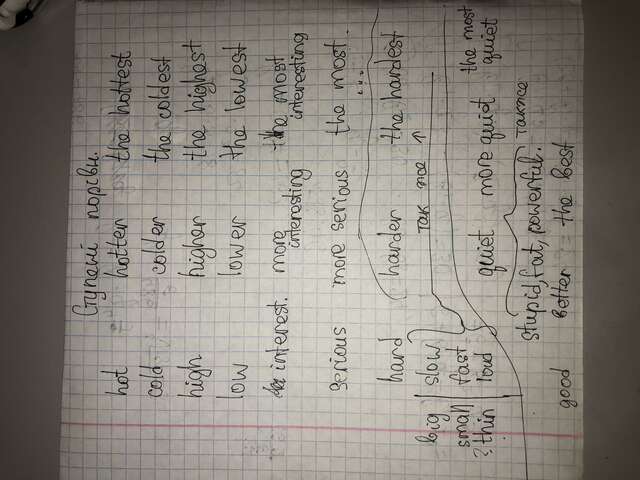 Ступені порівн.
hot hotter the hottest
cold colder the coldest
high higher the highest
low lower the lowest
interest. more interesting the most interesting
serious more serious the most ...
hard harder the hardest
big slow так же
small fast
? thin loud
quiet more quiet the most quiet
stupid, fat, powerful. також
good better the best